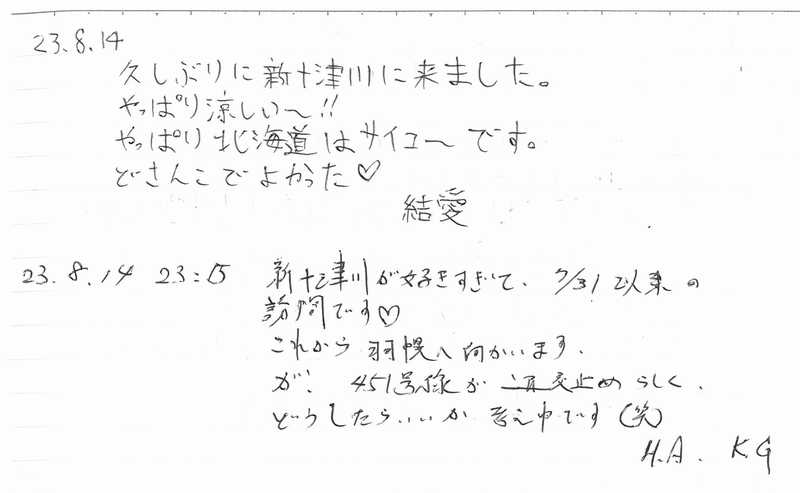 23.8.14
久しぶりに新十津川に来ました。
やっぱり涼しい〜!!
やっぱり北海道はサイコ〜です。
どさんこでよかった♡
結愛
23.8.14 23:15 新十津川が好きすぎて、7/31以来の
訪問です♡
これから羽幌へ向かいます。
が、451号線が通行止めらしく、
どうしたらいいか考え中です(笑)
H.A. K.G